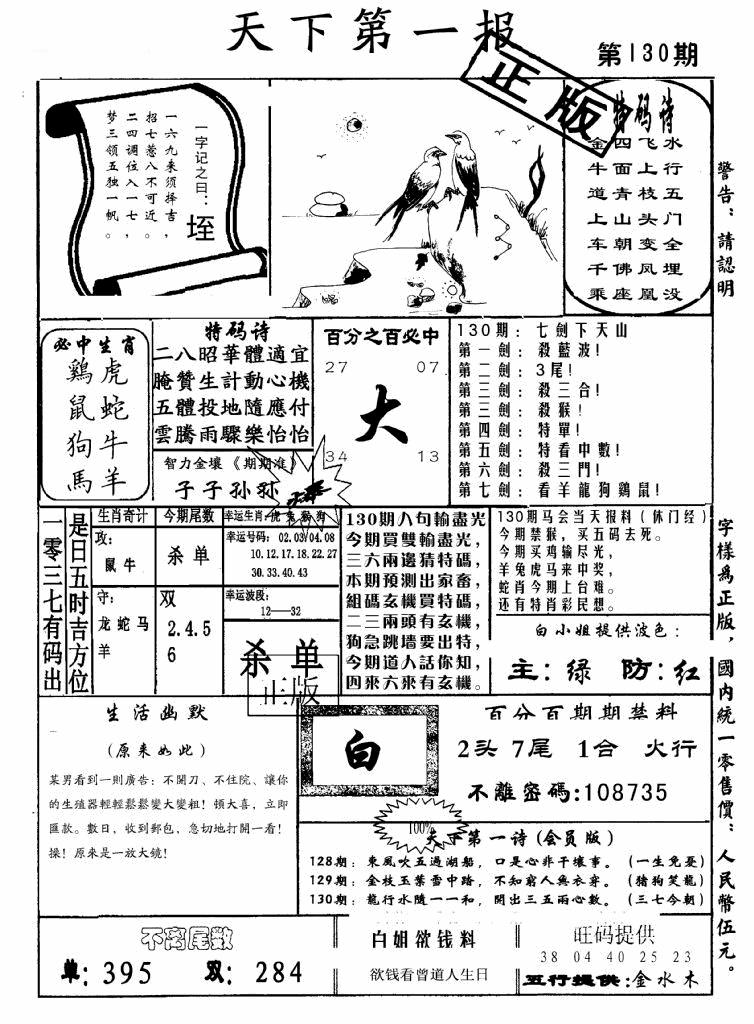 天下第一报
第130期
正版
一字记之曰：
垤
一六九来须择吉，
招七惹八不可近。
二四调位入一七，
梦三领五独一帆。
特码诗
金四飞水
牛面上行
道青枝五
上山头门
车朝变全
千佛凤埋
乘座凰没
警告：請認明
字樣為正版，國内統一零售價：人民幣伍元。
必中生肖
鷄虎
鼠蛇
狗牛
馬羊
特码诗
二八昭華體適宜
腌贊生計動心機
五體投地隨應付
雲騰雨驟樂怡怡
智力金壤《期期准》
子子孙孙
百分之百必中
27 07
大
34 13
130期：七劍下天山
第一劍：殺藍波！
第二劍：3尾！
第三劍：殺三合！
第三劍：殺猴！
第四劍：特單！
第五劍：特看中數！
第六劍：殺三門！
第七劍：看羊龍狗鷄鼠！
一零三七有码出
是日五时吉方位
生肖奇计
攻：
鼠牛
守：
龙蛇马
羊
今期尾数
杀单
双
2.4.5
6
幸运生肖：虎兔猴狗
幸运号码：02.03/04.08
10.12.17.18.22.27
30.33.40.43
幸运波段：
12——32
杀单
正版
130期八句輸盡光
今期買雙輸盡光，
三六兩邊猜特碼，
本期預測出家畜，
組碼玄機買特碼，
二三兩頭有玄機，
狗急跳墙要出特，
今期道人話你知，
四來六來有玄機。
130期马会当天报料（休门经）
今期禁猴，买五码去死。
今期买鸡输尽光，
羊兔虎马来中奖，
蛇肖今期上台难。
还有特肖彩民想。
白小姐提供波色：
主：绿 防：红
生活幽默
（原来如此）
某男看到一則廣告：不開刀、不住院、讓你
的生殖器輕輕鬆鬆變大變粗！頓大喜，立即
匯款。數日，收到郵包，急切地打開一看！
操！原來是一放大鏡！
白
百分百期期禁料
2头 7尾 1合 火行
不離密碼：108735
100%
天下第一诗（会员版）
128期：東風吹五過湖船，口是心非干壞事。（一生免憂）
129期：金枝玉葉雪中路，不知窮人無衣穿。（猪狗笑龍）
130期：龍行水隨一一和，開出三五兩心數。（三七今朝）
不离尾数
单：395 双：284
白姐欲钱料
欲钱看曾道人生日
旺码提供
38 04 40 25 23
五行提供：金水木